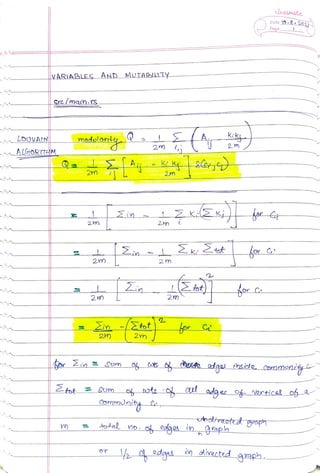 Classmate
Date
Page 1
VARIABLES AND MUTABILITY
src/main.rs
LOUVAIN ALGORITHM
modularity Q = 1/2m Σ_{i,j} ( A_ij - k_i k_j / 2m )
Q = 1/2m Σ_{ij} [ A_ij - k_i k_j / 2m ] δ(c_i, c_j)
= 1/2m [ Σ in - 1/2m Σ_i k_i (Σ k_j) ] for C_i
= 1/2m [ Σ in - 1/2m Σ k_i Σ tot ] for C_i
= 1/2m [ Σ in - 1/2m (Σ tot)² ] for C_i
= Σ in / 2m - ( Σ tot / 2m )² for C_i
for Σ in = sum of wts of edges inside community C
Σ tot = sum of wts of all edges of vertices of a
community C_i
m = total no. of edges in undirected graph
or 1/2 of edges in directed graph.